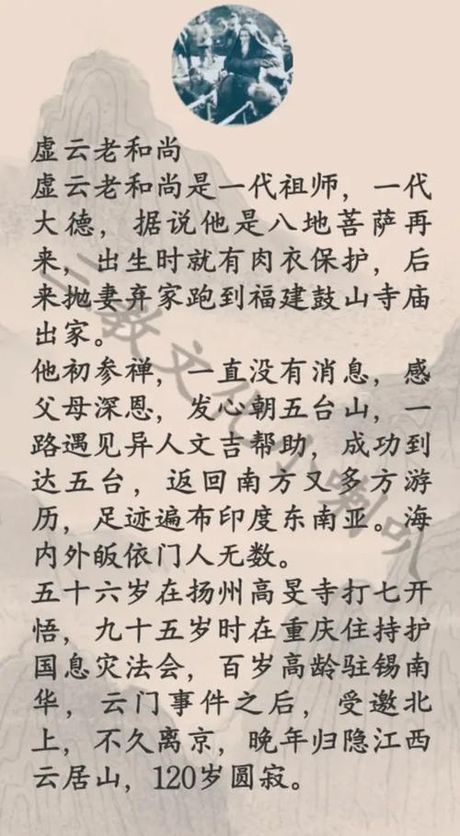 虚云老和尚
虚云老和尚是一代祖师，一代
大德，据说他是八地菩萨再
来，出生时就有肉衣保护，后
来抛妻弃家跑到福建鼓山寺庙
出家。
他初参禅，一直没有消息，感
父母深恩，发心朝五台山，一
路遇见异人文吉帮助，成功到
达五台，返回南方又多方游
历，足迹遍布印度东南亚。海
内外皈依门人无数。
五十六岁在扬州高旻寺打七开
悟，九十五岁时在重庆住持护
国息灾法会，百岁高龄驻锡南
华，云门事件之后，受邀北
上，不久离京，晚年归隐江西
云居山，120岁圆寂。
三教文化小喇叭